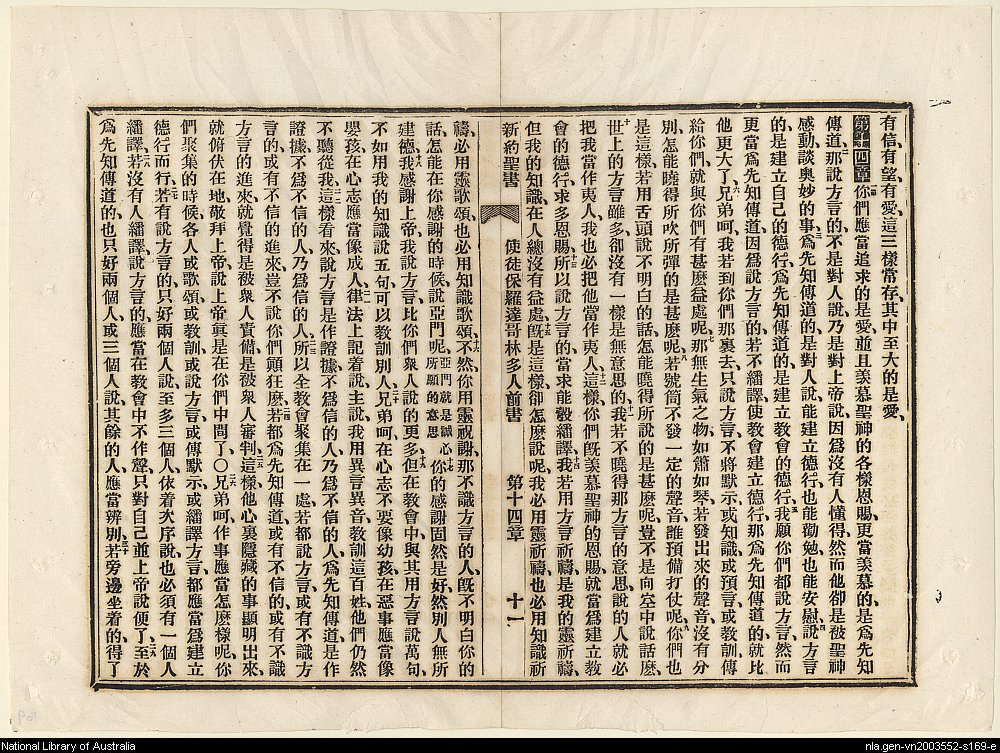 有信、有望、有愛、這三樣常存、其中至大的是愛、
第十四章 一你們應當追求的是愛、並且羨慕聖神的各樣恩賜、更當羨慕的、是爲先知
傳道、二那說方言的、不是對人說、乃是對上帝說、因爲沒有人懂得、然而他卻是被聖神
感動、談奧妙的事、三爲先知傳道的、是對人說、能建立德行、也能勸勉、也能安慰、四說方言
的、是建立自己的德行、爲先知傳道的、是建立教會的德行、五我願你們都說方言、然而
更當爲先知傳道、因爲說方言的、若不繙譯、使教會建立德行、那爲先知傳道的、就比
他更大了、六兄弟呵、我若到你們那裏去、只說方言、不將默示、或知識、或預言、或教訓傳
給你們、就與你們有甚麽益處呢、七那無生氣之物、如簫如琴、若發出來的聲音、沒有分
別、怎能曉得所吹所彈的是甚麽呢、八若號筒不發一定的聲音、誰預備打仗呢、九你們也
是這樣、若用舌頭說不明白的話、怎能曉得所說的是甚麽呢、豈不是向空中說話麽、
十世上的方言雖多、卻沒有一樣是無意思的、十一我若不曉得那方言的意思、說的人就必
把我當作夷人、我也必把他當作夷人、十二這樣你們旣羨慕聖神的恩賜、就當爲建立教
會的德行、求多恩賜、十三所以說方言的、當求能彀繙譯、十四我若用方言祈禱、是我的靈祈禱、
但我的知識、在人總沒有益處、十五旣是這樣、卻怎麽說呢、我必用靈祈禱、也必用知識祈
新約聖書 使徒保羅達哥林多人前書 第十四章 十一
禱、必用靈歌頌、也必用知識歌頌、十六不然、你用靈祝謝、那不識方言的人、旣不明白你的
話、怎能在你感謝的時候說亞門呢、亞門就是誠心所願的意思十七你的感謝固然是好、然別人無所
建德、十八我感謝上帝、我說方言比你們衆人說的更多、十九但在教會中、與其用方言說萬句、
不如用我的知識說五句、可以教訓別人、二十兄弟呵、在心志不要像幼孩、在惡事應當像
嬰孩、在心志應當像成人、二一律法上記着說、主說、我用異言異音教訓這百姓、他們仍然
不聽從我、二二這樣看來、說方言、是作證據、不爲信的人、乃爲不信的人、爲先知傳道、是作
證據、不爲不信的人、乃爲信的人、二三所以全教會聚集在一處、若都說方言、或有不識方
言的、或有不信的進來、豈不說你們顚狂麽、二四若都爲先知傳道、或有不信的、或有不識
方言的進來、就覺得是被衆人責備、是被衆人審判、二五這樣他心裏隱藏的事顯明出來、
就俯伏在地、敬拜上帝、說上帝眞是在你們中間了、○二六兄弟呵、作事應當怎麽樣呢、你
們聚集的時候、各人或歌頌、或教訓、或說方言、或傳默示、或繙譯方言、都應當爲建立
德行而行、二七若有說方言的、只好兩個人說、至多三個人、依着次序說、也必須有一個人
繙譯、二八若沒有人繙譯、說方言的、應當在教會中不作聲、只對自己並上帝說便了、二九至於
爲先知傳道的、也只好兩個人、或三個人說、其餘的人、應當辨別、三十若旁邊坐着的得了
National Library of Australia
nla.gen-vn2003552-s169-e